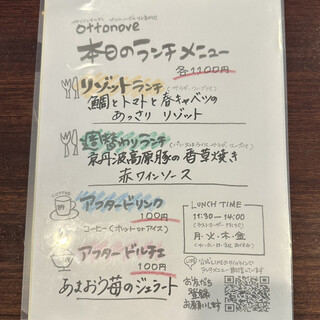 ottonove
本日のランチメニュー
各1100円
リゾットランチ
鯛とトマトと春キャベツの
あっさり リゾット
週替わりランチ
京丹波高原豚の香草焼き
赤ワインソース
COFFEE
アフタードリンク
100円
コーヒー(ホットorアイス)
アフタードルチェ
100円
あまおう苺のジェラート
LUNCH TIME
11:30 - 14:00
月・火・木・金
お友だち
登録
お願いします